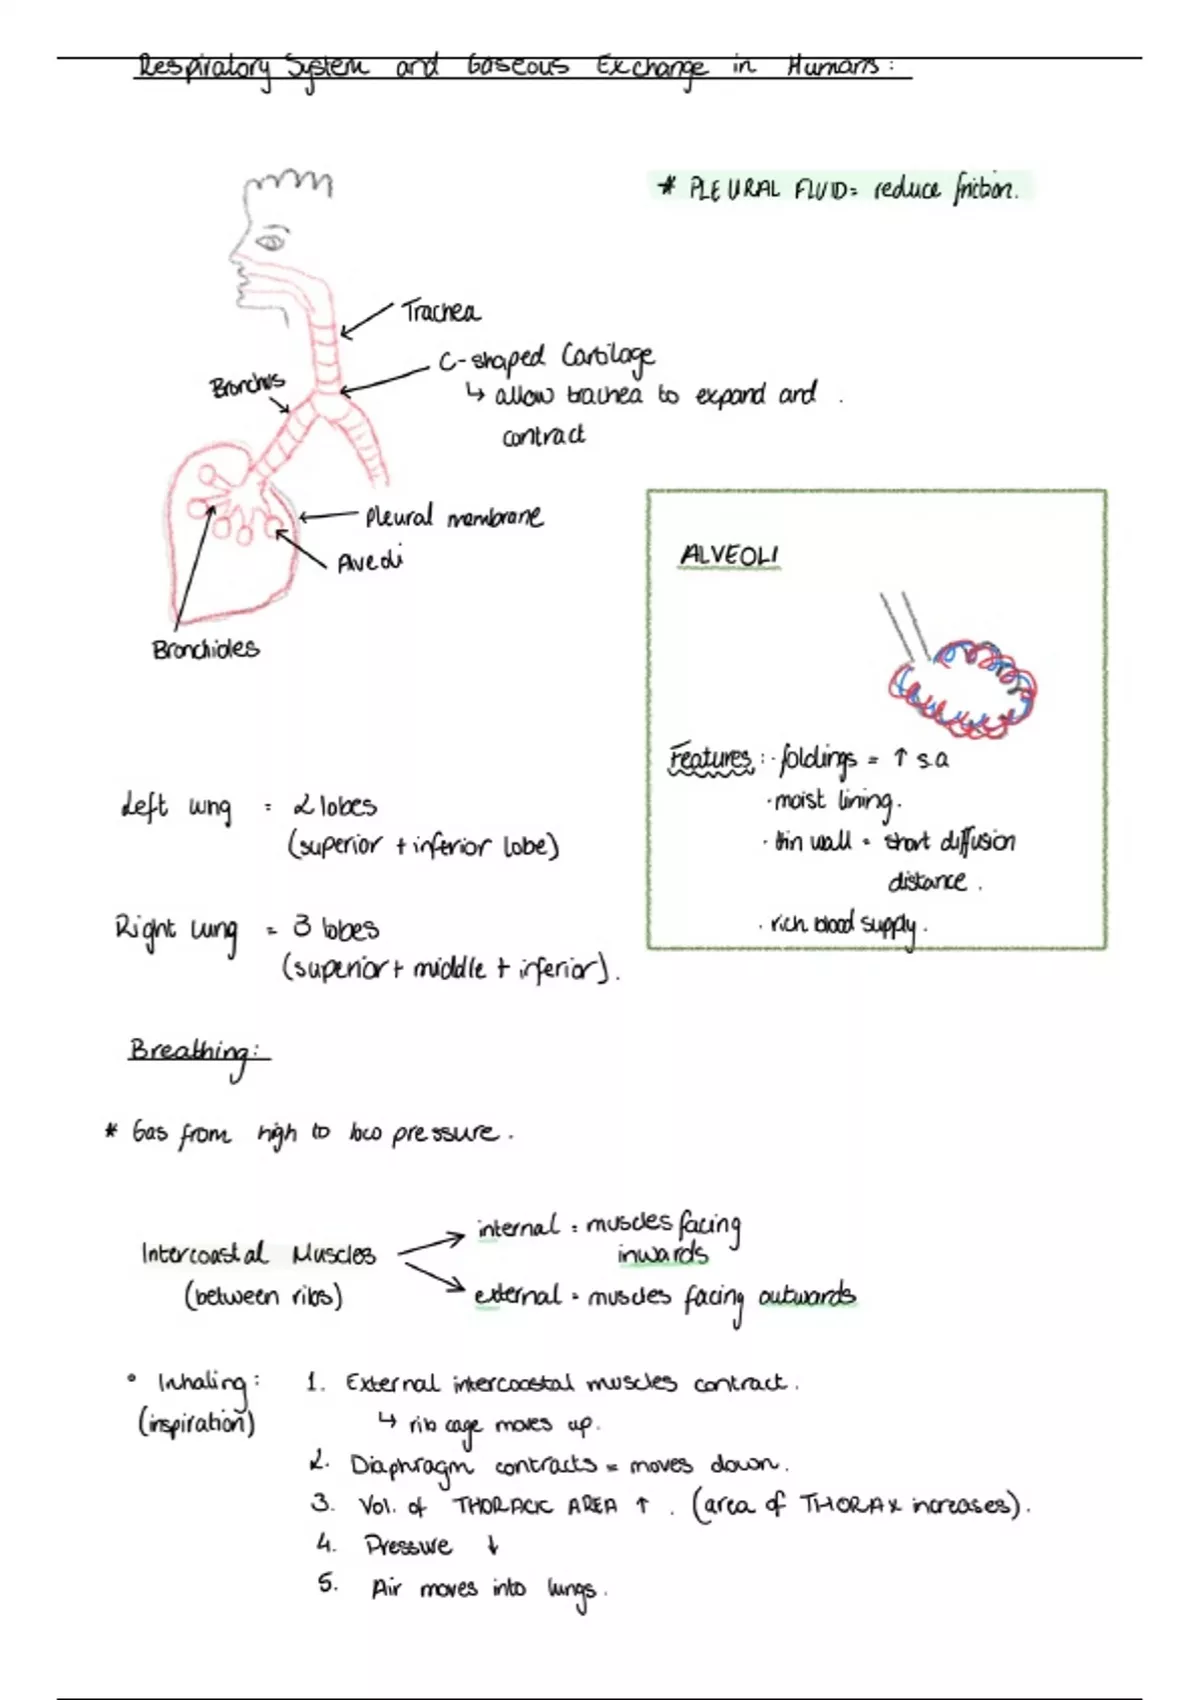 Respiratory System and Gaseous Exchange in Humans:
* PLEURAL FLUID = reduce friction.
Trachea
C-shaped Cartilage
↳ allow trachea to expand and
contract
Bronchus
Pleural membrane
Alveoli
Bronchioles
ALVEOLI
Features: · foldings = ↑ s.a
· moist lining.
· thin wall = short diffusion
distance.
· rich blood supply.
Left lung = 2 lobes
(superior + inferior lobe)
Right lung = 3 lobes
(superior + middle + inferior).
Breathing:
* Gas from high to low pressure.
Intercoastal Muscles
(between ribs)
internal = muscles facing
inwards
external = muscles facing outwards
• Inhaling:
(inspiration)
1. External intercoastal muscles contract.
↳ rib cage moves up.
2. Diaphragm contracts = moves down.
3. Vol. of THORACIC AREA ↑ . (area of THORAX increases).
4. Pressure ↓
5. Air moves into lungs.